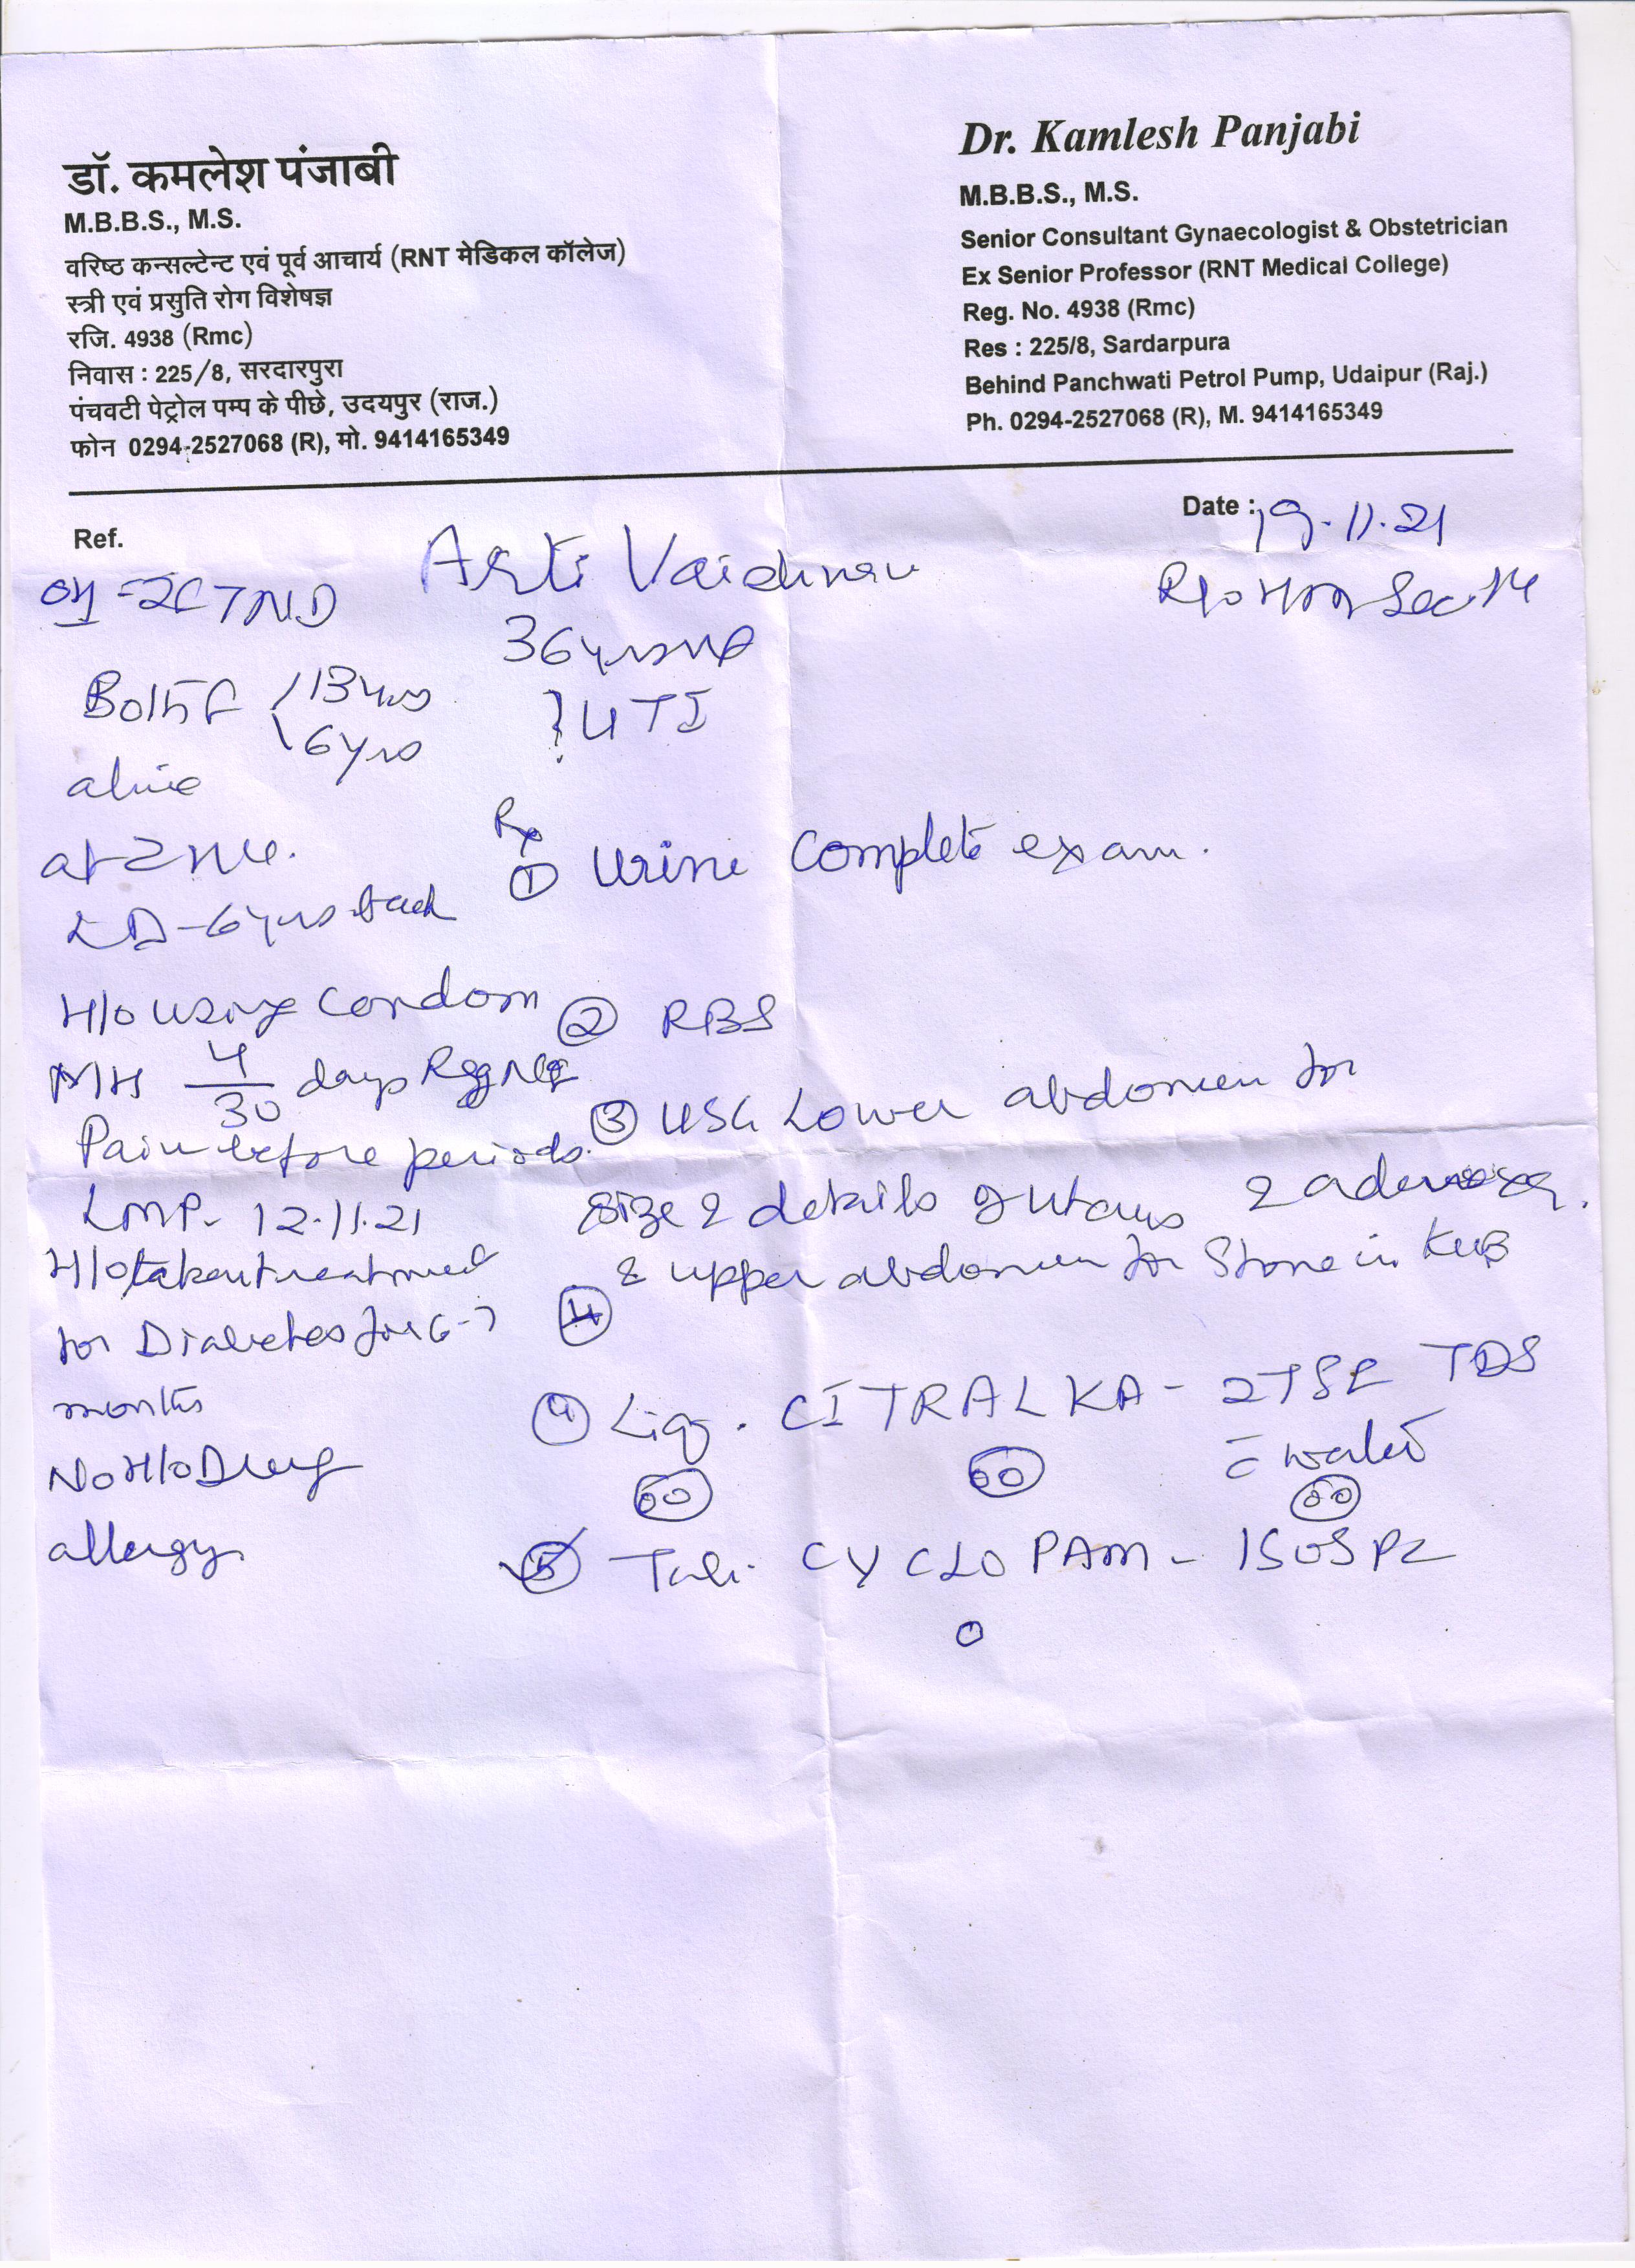 डॉ. कमलेश पंजाबी
M.B.B.S., M.S.
वरिष्ठ कन्सल्टेन्ट एवं पूर्व आचार्य (RNT मेडिकल कॉलेज)
स्त्री एवं प्रसुति रोग विशेषज्ञ
रजि. 4938 (Rmc)
निवास : 225/8, सरदारपुरा
पंचवटी पेट्रोल पम्प के पीछे, उदयपुर (राज.)
फोन 0294-2527068 (R), मो. 9414165349
Dr. Kamlesh Panjabi
M.B.B.S., M.S.
Senior Consultant Gynaecologist & Obstetrician
Ex Senior Professor (RNT Medical College)
Reg. No. 4938 (Rmc)
Res : 225/8, Sardarpura
Behind Panchwati Petrol Pump, Udaipur (Raj.)
Ph. 0294-2527068 (R), M. 9414165349
Date : 19.11.21
Ref.
Arti Vaishnav
R/o Sec 14
36 yrs
? UTI
FTND
Both F 13 yrs
6 yrs
alive
LD - 6 yrs back
H/o using condom
MH 4/30 days Reg
Pain before periods.
LMP - 12.11.21
H/o taken treatment
for Diabetes for 6-7
months
No H/o Drug
allergy
Rx
① Urine Complete exam.
② RBS
③ USG Lower abdomen for
size & details of uterus &
& upper abdomen for Stone in KUB
④
④ Liq. CITRALKA - 2TSF TDS
c̄ water
60 60 60
⑤ Tab. CYCLOPAM - 1 SOS P2
0